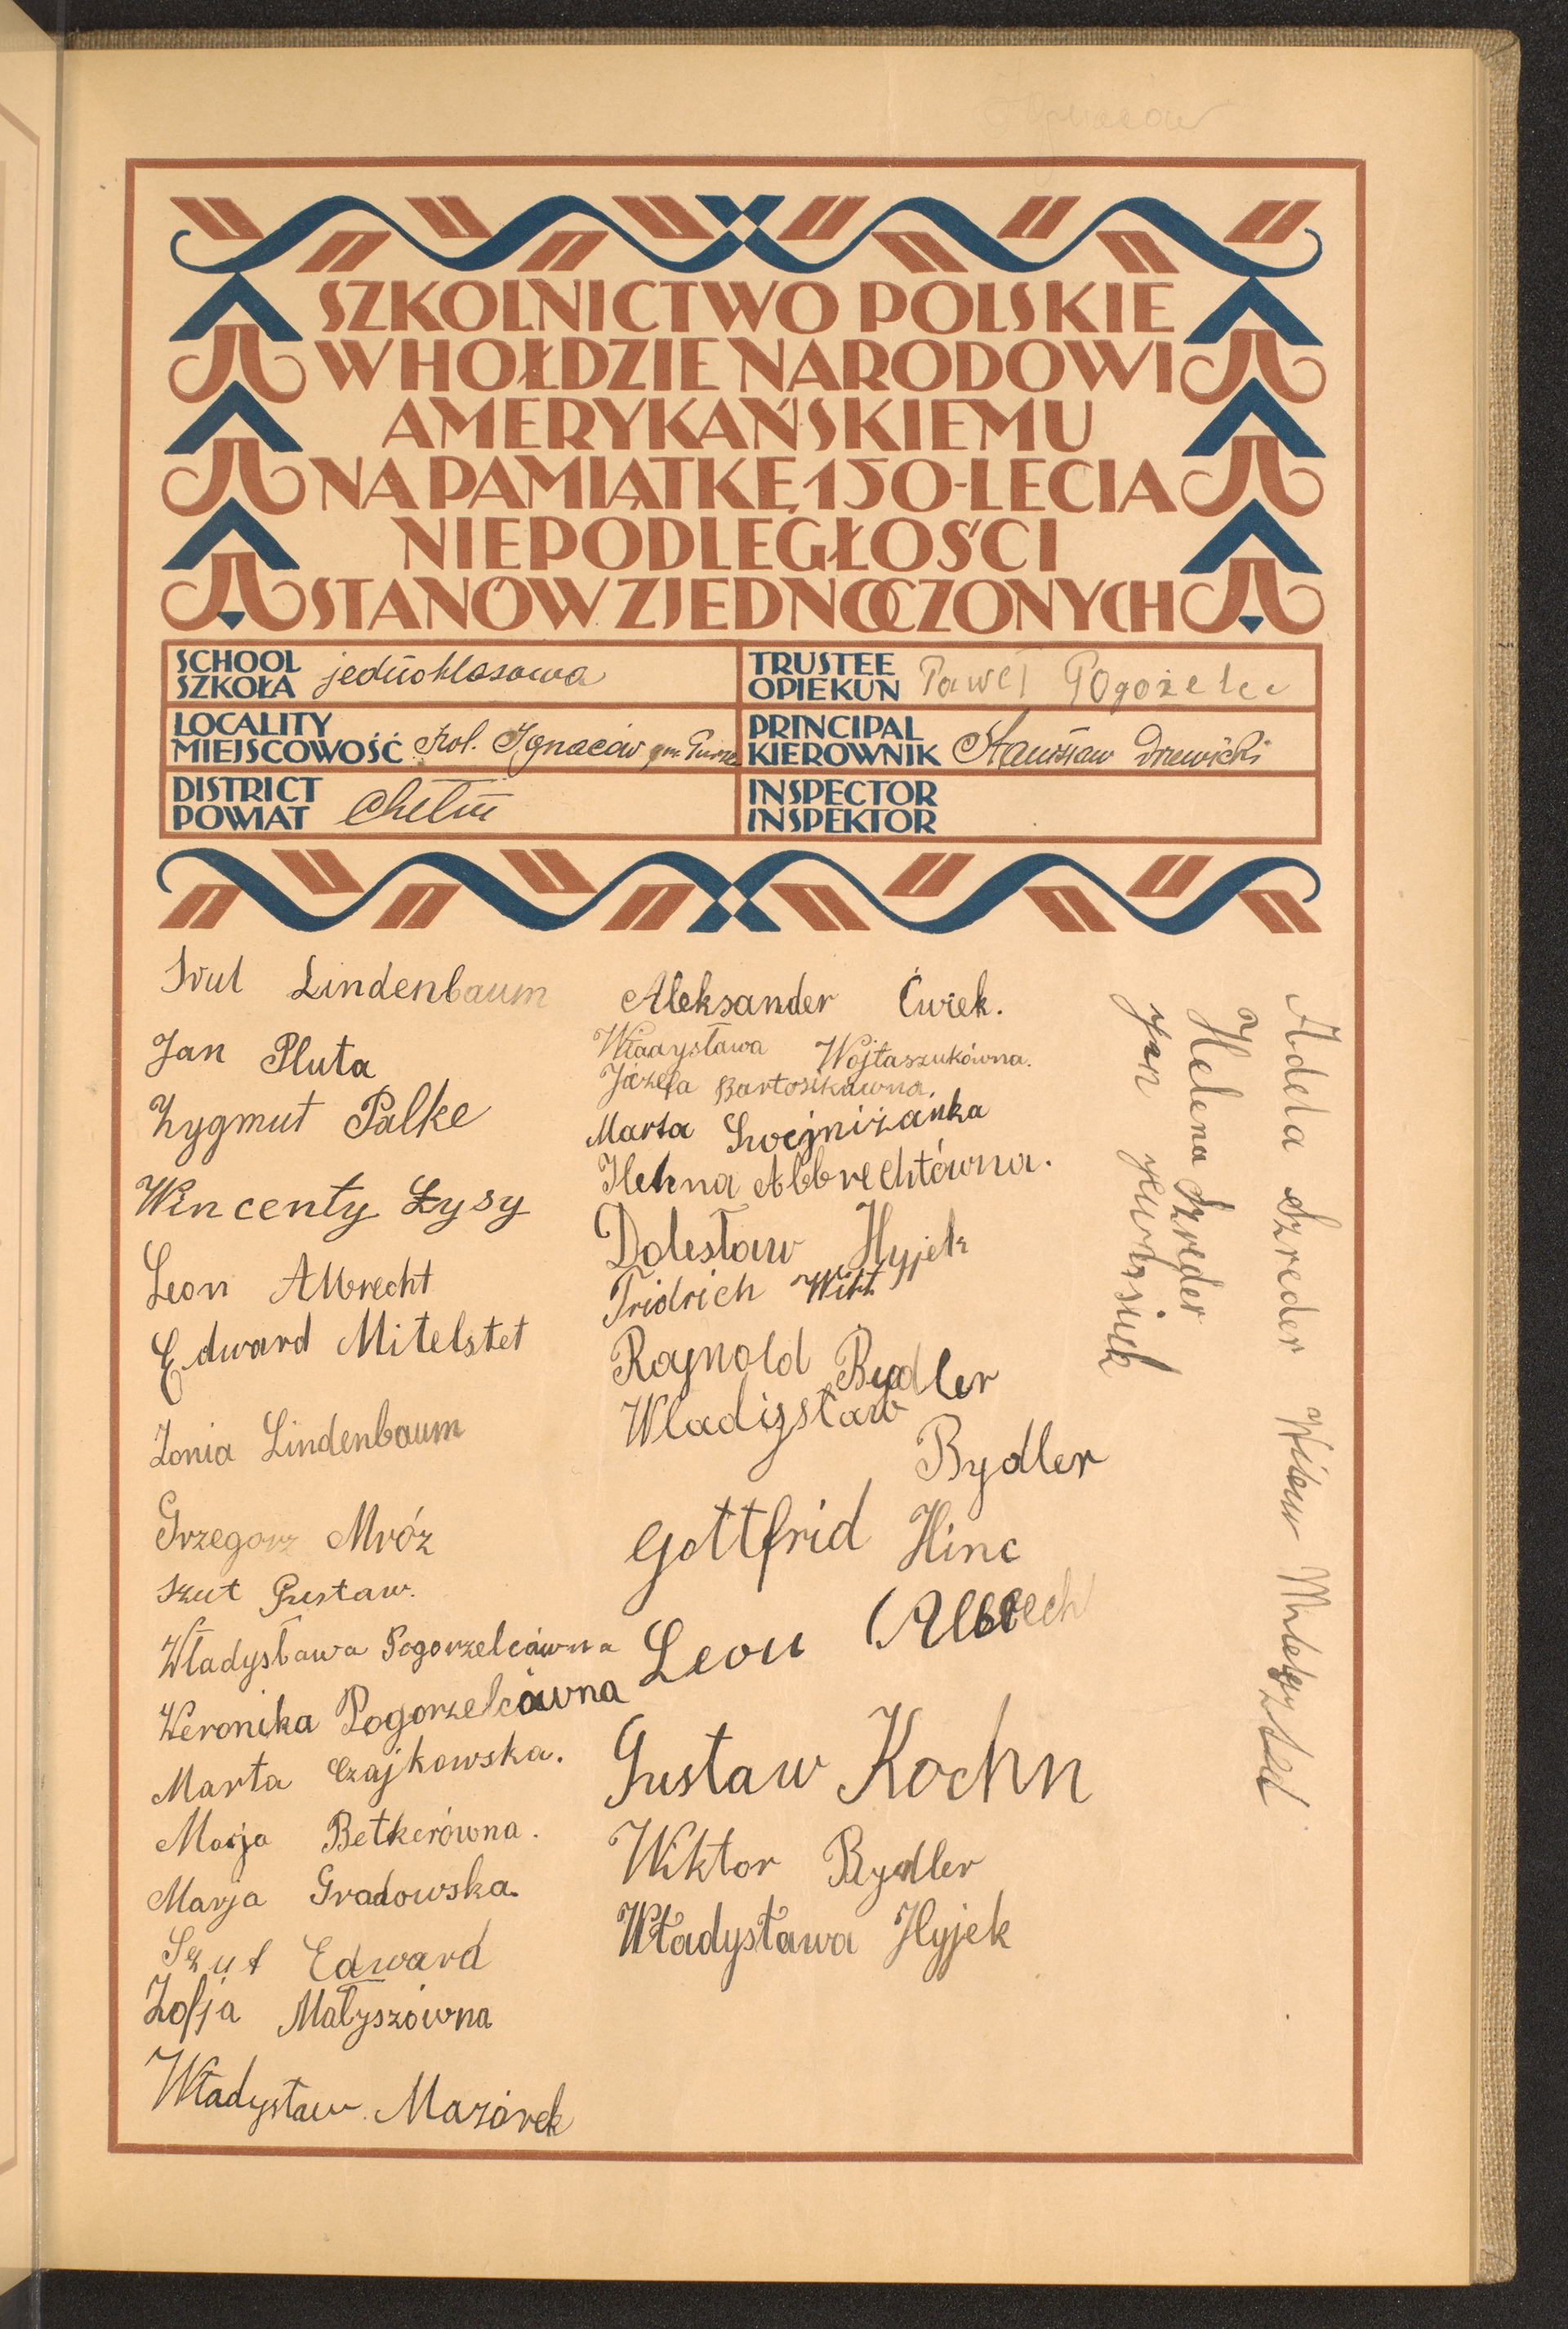 Ignaców
SZKOLNICTWO POLSKIE
W HOŁDZIE NARODOWI
AMERYKAŃSKIEMU
NA PAMIĄTKĘ 150-LECIA
NIEPODLEGŁOŚCI
STANÓW ZJEDNOCZONYCH
SCHOOL
SZKOŁA jednoklasowa
TRUSTEE
OPIEKUN Paweł
LOCALITY
MIEJSCOWOŚĆ Kol. Ignaców gm.
PRINCIPAL
KIEROWNIK Stanisław Drewicki
DISTRICT
POWIAT Chełm
INSPECTOR
INSPEKTOR
Lindenbaum
Jan Pluta
Zygmut Palke
Wincenty Łysy
Leon Albrecht
Edward Mitelstet
Zonia Lindenbaum
Grzegorz Mróz
Szut Gustaw.
Władysława Pogorzelcówna
Weronika Pogorzelcówna
Marta Czajkowska.
Marja Betkerówna.
Marja Gradowska.
Szut Edward
Zofja Małyszówna
Władysław Mazórek
Aleksander Ćwiek.
Władysława Wojtaszukówna.
Józefa Bartosikówna.
Marta
Albrechtówna.
Bolesław Hyjek
Fridrich Witt
Rajnold Bydler
Wladisław
Bydler
Gottfrid Hinc
Leon Albrech
Gustaw Kochn
Wiktor Bydler
Władysława Hyjek
Adela Szreder
Helena Szreder
Jan